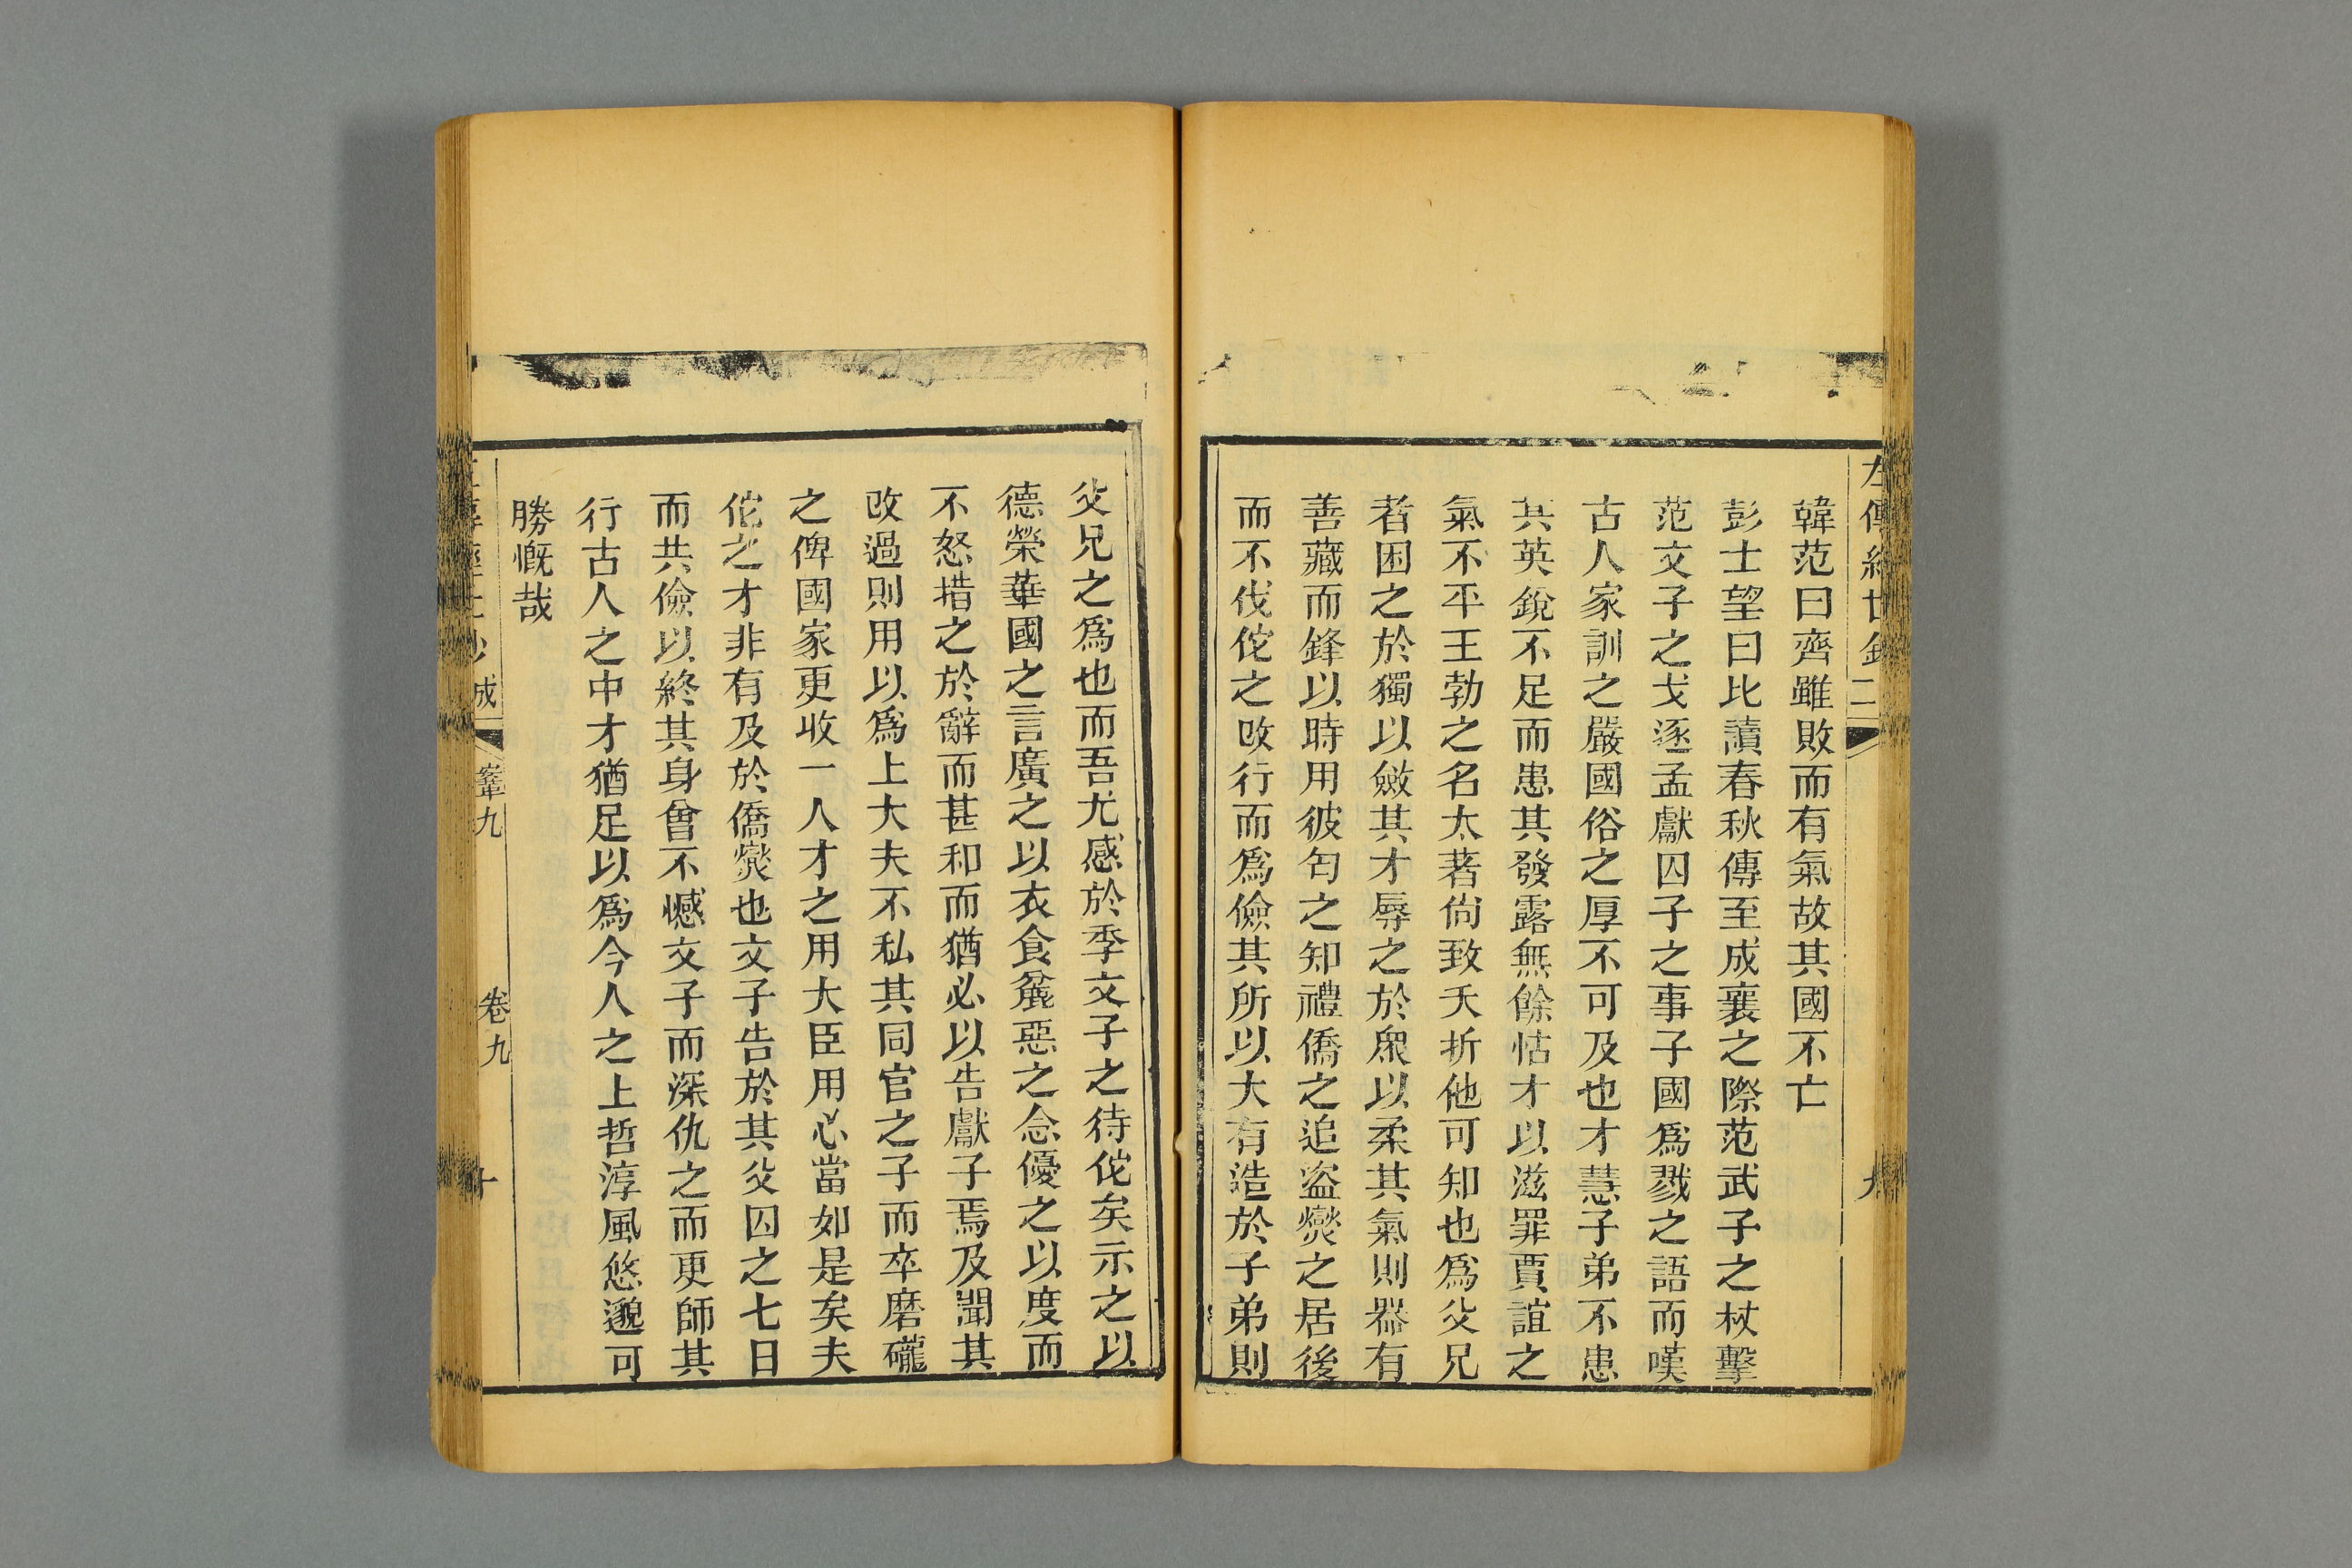 韓范曰齊雖敗而有氣故其國不亡
彭士望曰比讀春秋傳至成襄之際范武子之杖擊
范文子之戈逐孟獻囚子之事子國爲戮之語而嘆
古人家訓之嚴國俗之厚不可及也才慧子弟不患
其英銳不足而患其發露無餘怙才以滋罪賈誼之
氣不平王勃之名太著尙致夭折他可知也爲父兄
者困之於獨以斂其才辱之於衆以柔其氣則器有
善藏而鋒以時用彼匄之知禮僑之追盜爕之居後
而不伐佗之改行而爲儉其所以大有造於子弟則
父兄之爲也而吾尤感於季文子之待佗矣示之以
德榮華國之言廣之以衣食麤惡之念優之以度而
不怒措之於辭而甚和而猶必以告獻子焉及聞其
改過則用以爲上大夫不私其同官之子而卒磨礲
之俾國家更收一人才之用大臣用心當如是矣夫
佗之才非有及於僑爕也文子告於其父囚之七日
而共儉以終其身曾不憾文子而深仇之而更師其
行古人之中才猶足以爲今人之上哲淳風悠邈可
勝慨哉
卷九
十